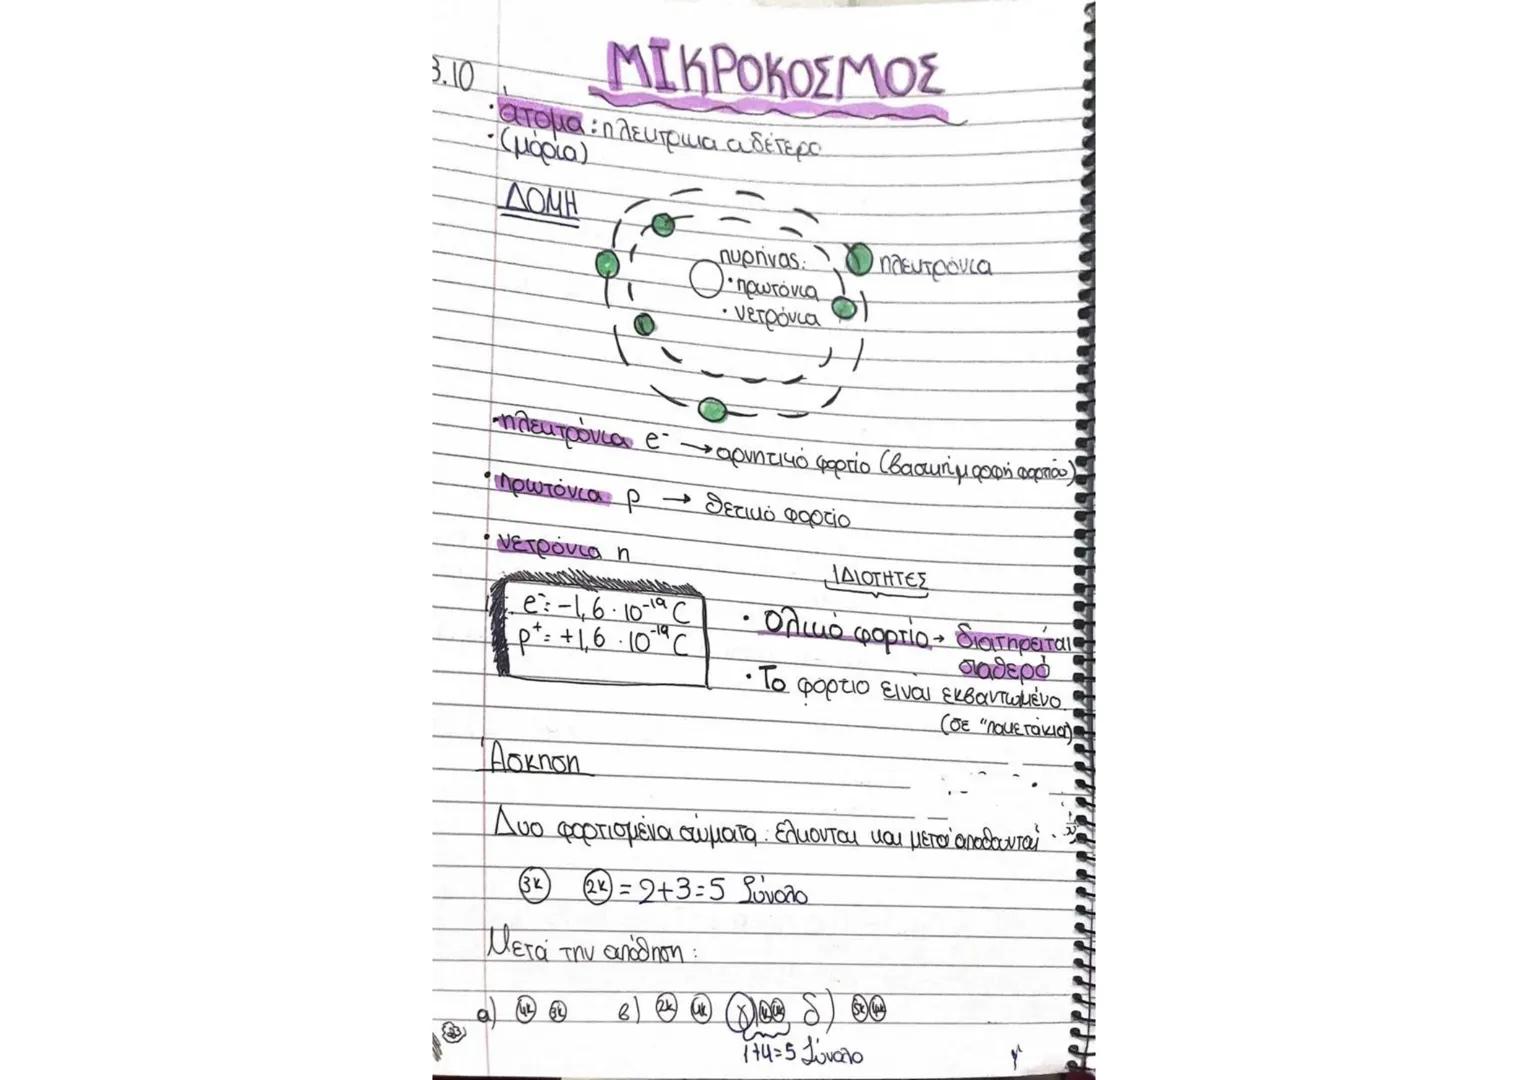 ΜΙΚΡΟΚΟΣΜΟΣ
3.10
· άτομα : ηλεκτρικα ουδέτερο
· (μόρια)
ΔΟΜΗ
πυρήνας:
· πρωτόνια
· νετρόνια
ηλεκτρόνια
· ηλεκτρόνια e⁻ → αρνητικό φορτίο (βασική μορφή φορτίου)
· πρωτόνια p → θετικό φορτίο
· νετρόνια n
e⁻= -1,6 · 10⁻¹⁹ C
p⁺= +1,6 · 10⁻¹⁹ C
ΙΔΙΟΤΗΤΕΣ
· Ολικό φορτίο → διατηρείται
σταθερό
· Το φορτιο ειναι εκβαντωμένο
(σε "πακετάκια)
Άσκηση
Δυο φορτισμένα σώματα : έλκονται και μετά απωθουνται .
3κ 2κ = 2+3=5 Σύνολο
Μετά την απώθηση :
α) 4κ 3κ β) 2κ 4κ γ) 1κ 4κ δ) 5κ 4κ
1+4=5 Σύνολο